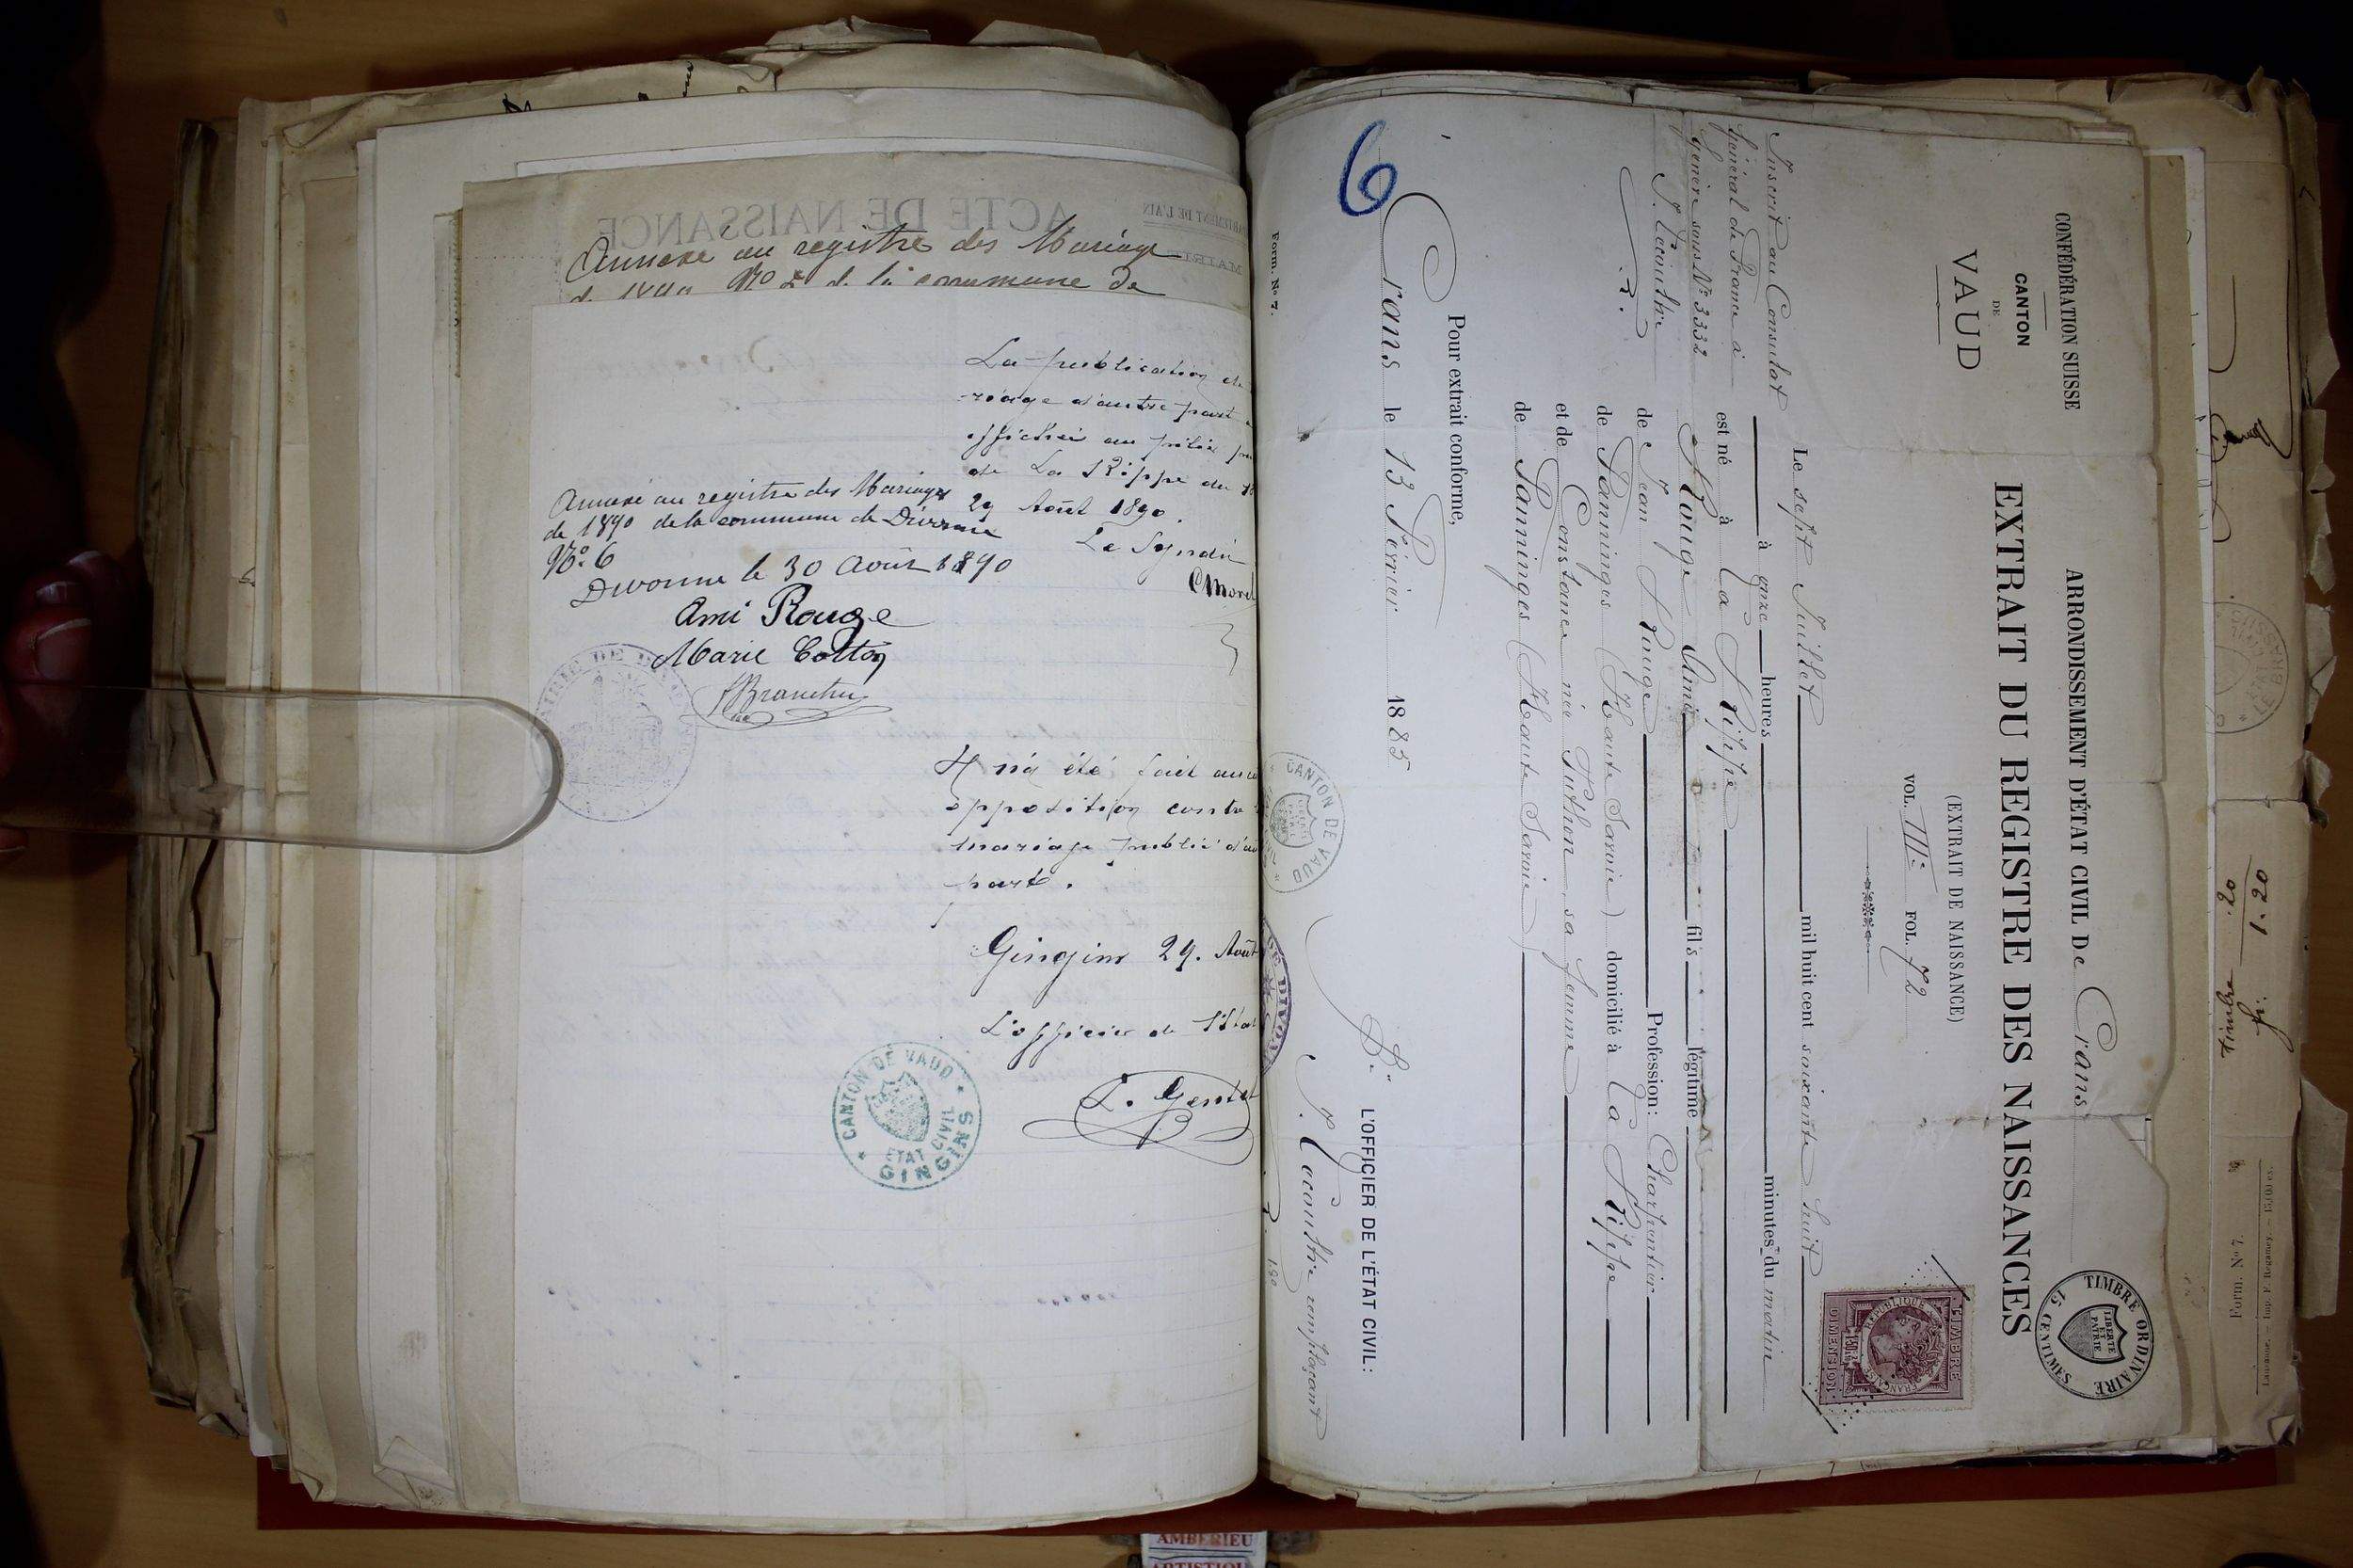 ACTE DE NAISSANCE
Annexé au registre des Mariage
de la commune de
La publication de
riage d'autre part
affichée au pilier
de La Rippe du
29 Août 1890.
Le Syndic
Annexé au registre des Mariages
de 1890 de la commune de Divonne
No: 6
Divonne le 30 Août 1890
Ami Rouge
Marie Cotton
Il n'a été fait aucu
opposition contre
mariage publié d'au
part.
Gingins 29. Août
L'officier de l'état
L. Gentet
CANTON DE VAUD
ETAT CIVIL
GINGINS
6
CONFÉDÉRATION SUISSE
CANTON
DE
VAUD
ARRONDISSEMENT D'ÉTAT CIVIL De Crans
TIMBRE ORDINAIRE
LIBERTÉ ET PATRIE
15 CENTIMES
EXTRAIT DU REGISTRE DES NAISSANCES
(EXTRAIT DE NAISSANCE)
VOL. III: FOL. 72
TIMBRE
REPUBLIQUE FRANÇAISE
DIMENSION
Inscrit au Consulat
Général de France à
Genève sous No 3332
J. Lacoustre
Le sept Juillet mil huit cent soixante huit
à onze heures minutes du matin
est né à La Rippe
Rouge Ami fils légitime
de Jean Rouge Profession: Charpentier
de Samminges (Haute Savoie) domicilié à La Rippe
et de Constance née Puthon sa femme
de Samminges (Haute Savoie)
Pour extrait conforme,
Crans le 13 Février 1885
L'OFFICIER DE L'ÉTAT CIVIL:
J. Lacoustre remplaçant
CANTON DE VAUD
Form. No 7.
1.20
timbre .20
Form. No 7.
AMBERIEU